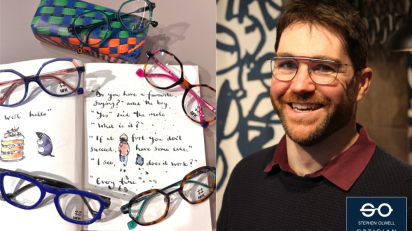 Well hello"
"Do you have a favourite
saying?" asked the boy.
"Yes" said the mole
"What is it?"
"If at first you don't
succeed, have some cake."
"I see, does it work?"
"Every time"
SO
STEPHEN OLWELL
OPTICIAN